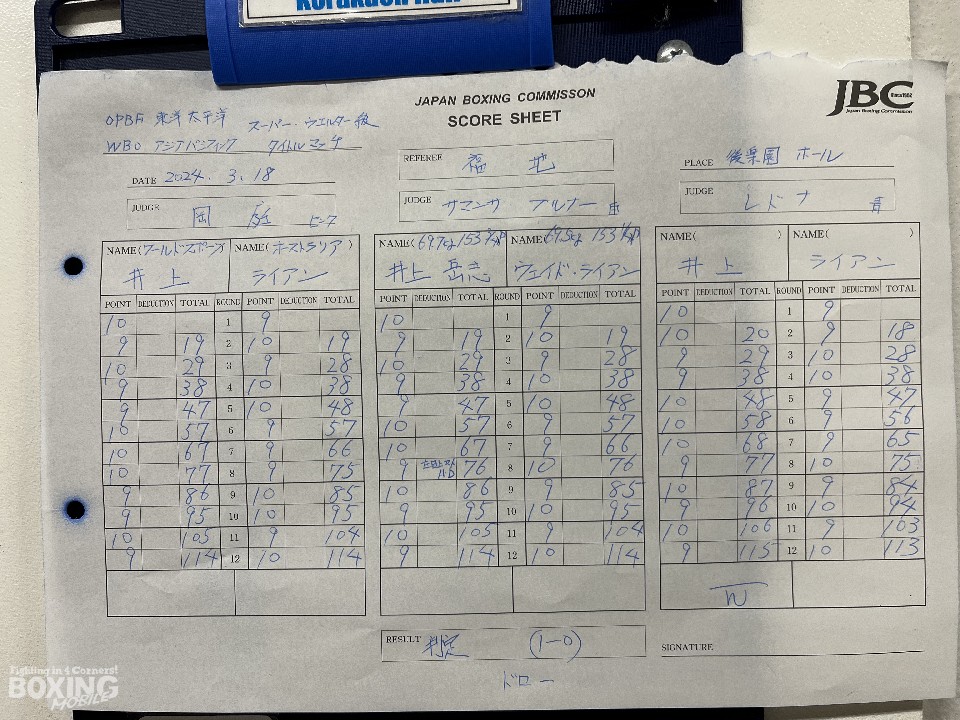 Korakuen Hall
JAPAN BOXING COMMISSON
SCORE SHEET
JBC
Since1952
Japan Boxing Commission
OPBF 東洋太平洋 スーパー・ウエルター級
WBO アジアパシフィック タイトルマッチ
DATE 2024. 3. 18
REFEREE 福地
PLACE 後楽園ホール
JUDGE 岡庭 ピンク
JUDGE サマンサ ブルナー 白
JUDGE レドナ 青
NAME(ワールドスポーツ) NAME(オーストラリア) NAME(69.7kg 153 1/2P NAME(69.5kg 153 1/4P NAME( ) NAME( )
井上 ライアン 井上 岳志 ウェイド・ライアン 井上 ライアン
POINT DEDUCTION TOTAL ROUND POINT DEDUCTION TOTAL POINT DEDUCTION TOTAL ROUND POINT DEDUCTION TOTAL POINT DEDUCTION TOTAL ROUND POINT DEDUCTION TOTAL
10 1 9 10 1 9 10 1 9
9 19 2 10 19 9 19 2 10 19 10 20 2 9 18
10 29 3 9 28 10 29 3 9 28 9 29 3 10 28
9 38 4 10 38 9 38 4 10 38 9 38 4 10 38
9 47 5 10 48 9 47 5 10 48 10 48 5 9 47
10 57 6 9 57 10 57 6 9 57 10 58 6 9 56
10 67 7 9 66 10 67 7 9 66 10 68 7 9 65
10 77 8 9 75 9 76 8 10 76 9 77 8 10 75
9 86 9 10 85 10 86 9 9 85 10 87 9 9 84
9 95 10 10 95 9 95 10 10 95 9 96 10 10 94
10 105 11 9 104 10 105 11 9 104 10 106 11 9 103
9 114 12 10 114 9 114 12 10 114 9 115 12 10 113
W
RESULT 判定 (1-0)
SIGNATURE
ドロー
Fighting in 4 Corners!
BOXING
MOBILE